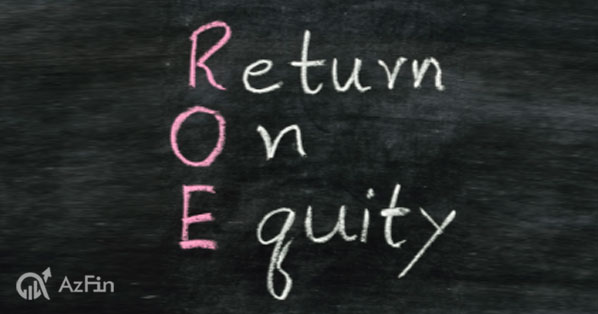 Return
On
Equity
AzFin